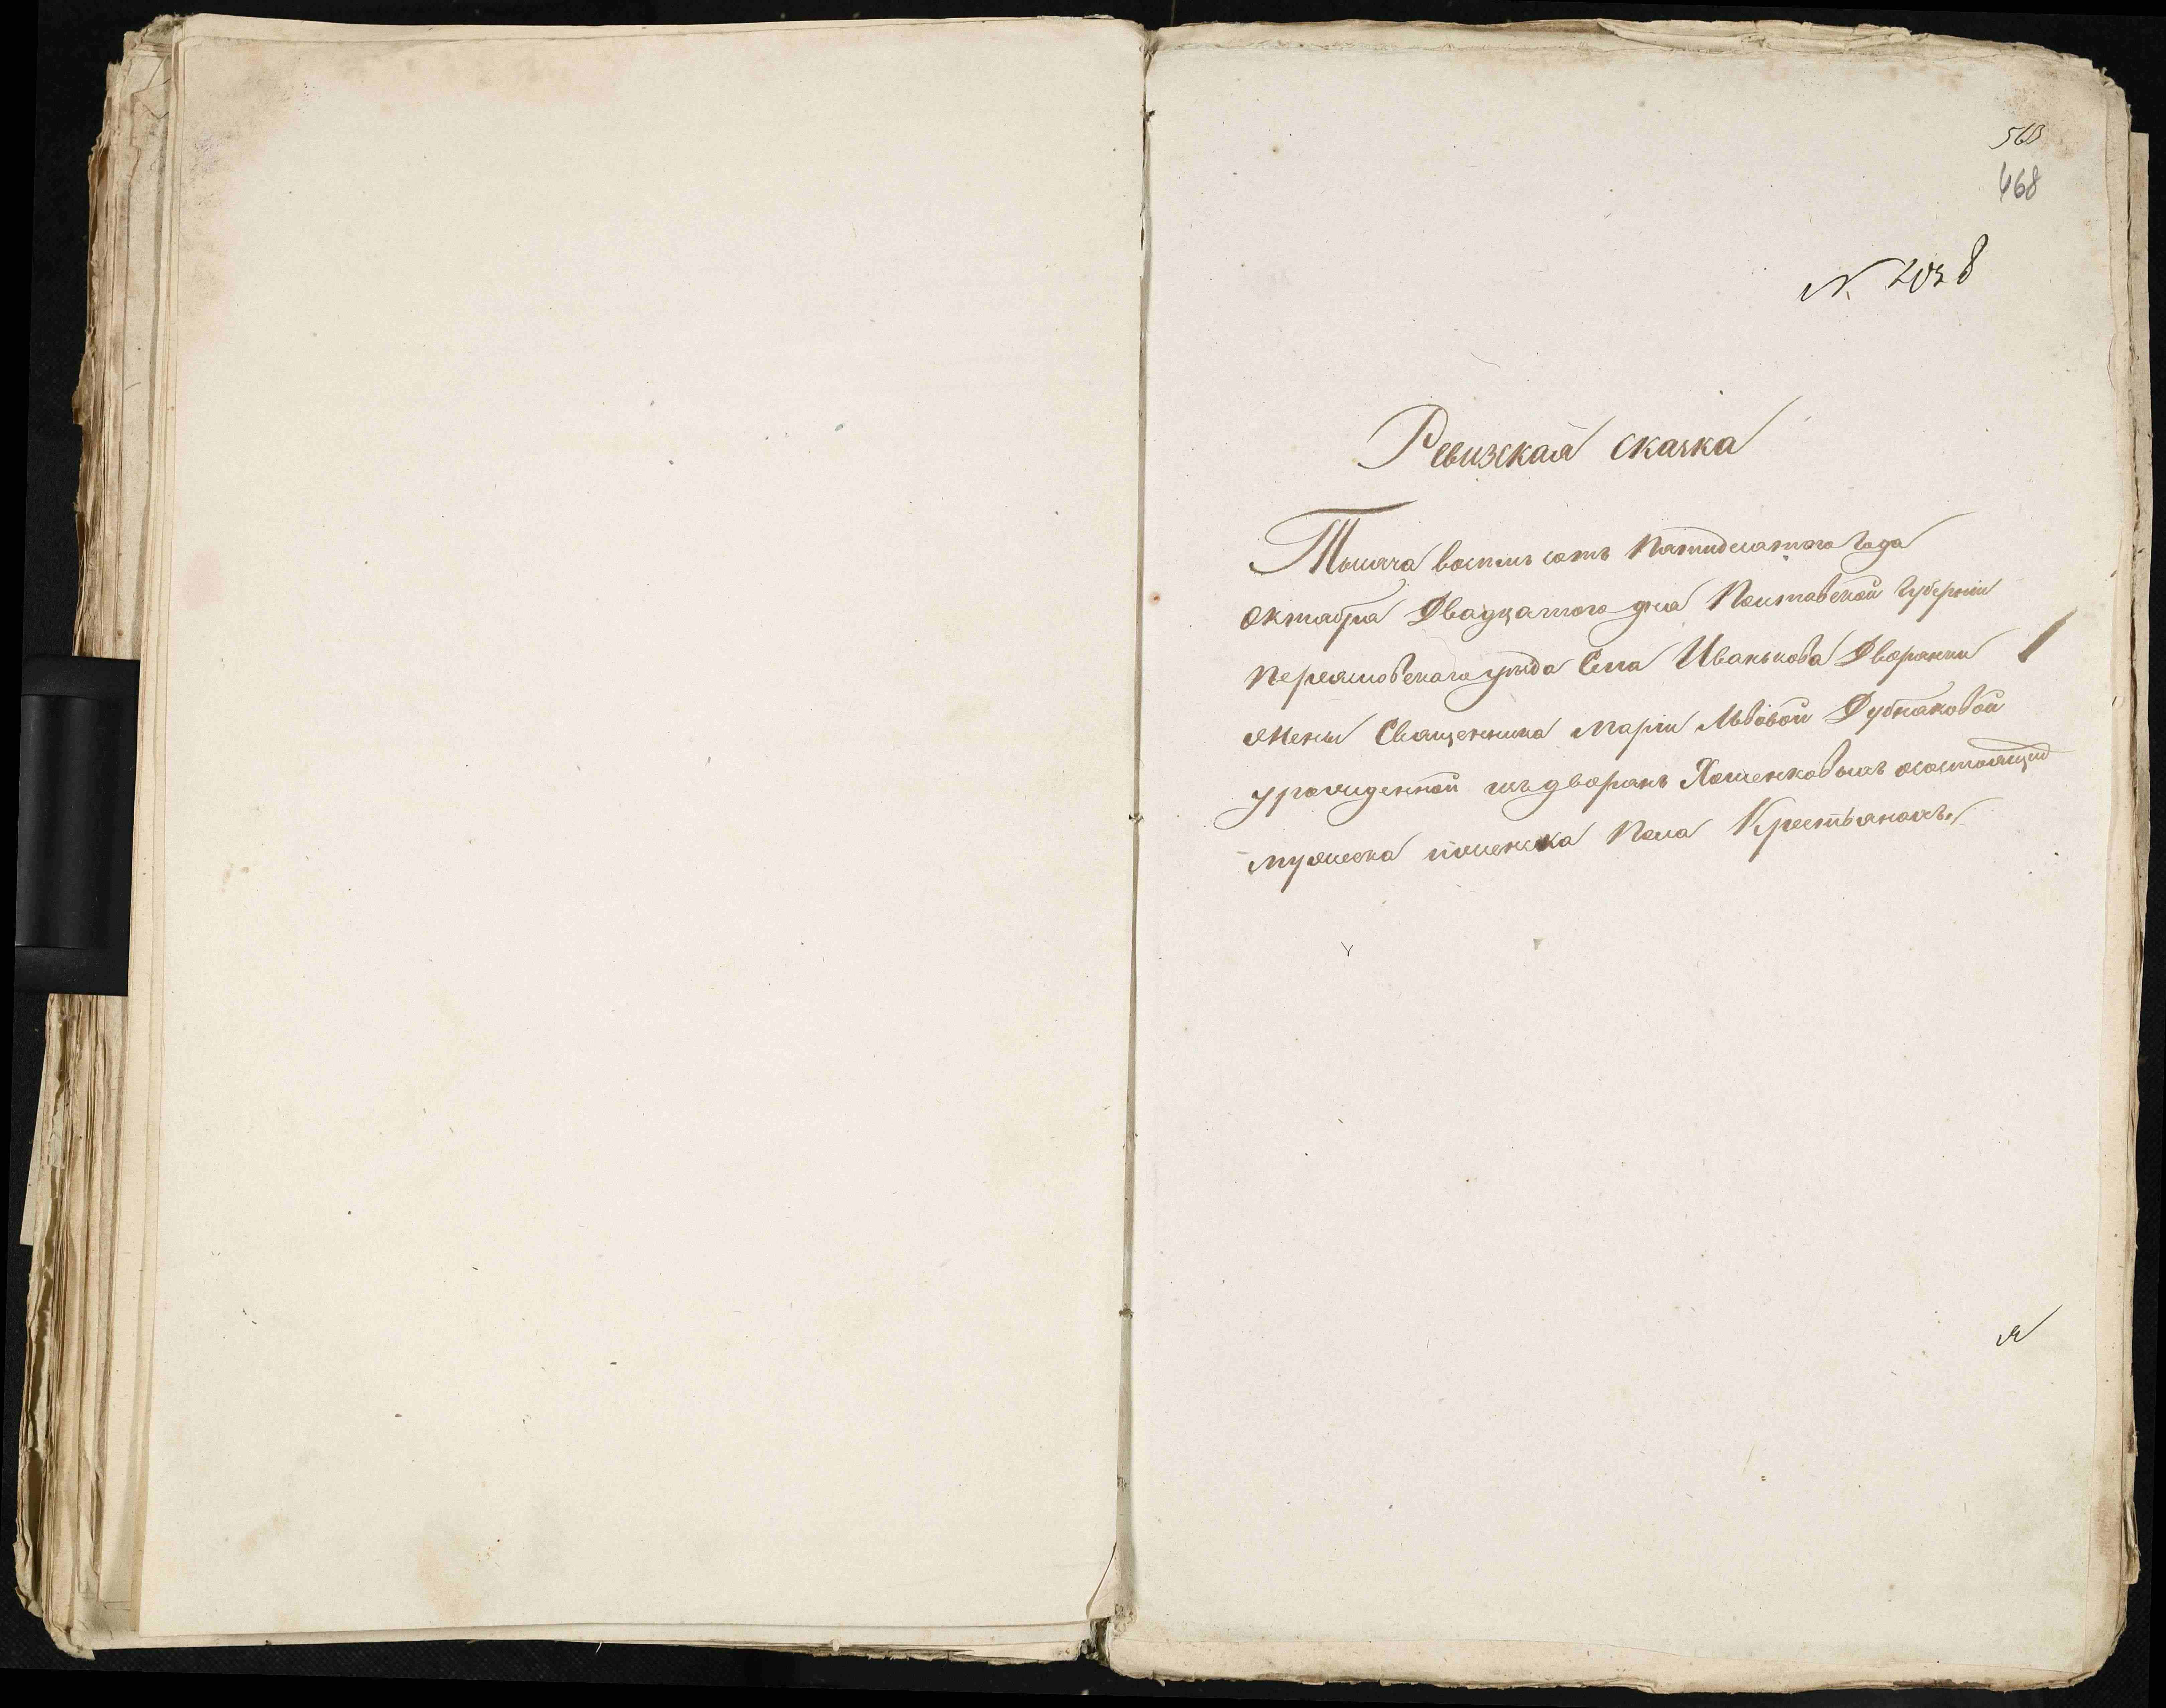 468
N. 2038
Ревизская сказка
Тысяча восемь сотъ пятидесятого Года
Октября Двадцатого дня Полтавской Губернии
Переяславского уезда Села Иванькова Дворянки
жены Священника Марiи Львовой Дубняковой
урожденной изъ дворянъ Хоменковыхъ осостоящид
мужеска иженска Пола Крестьянахъ.